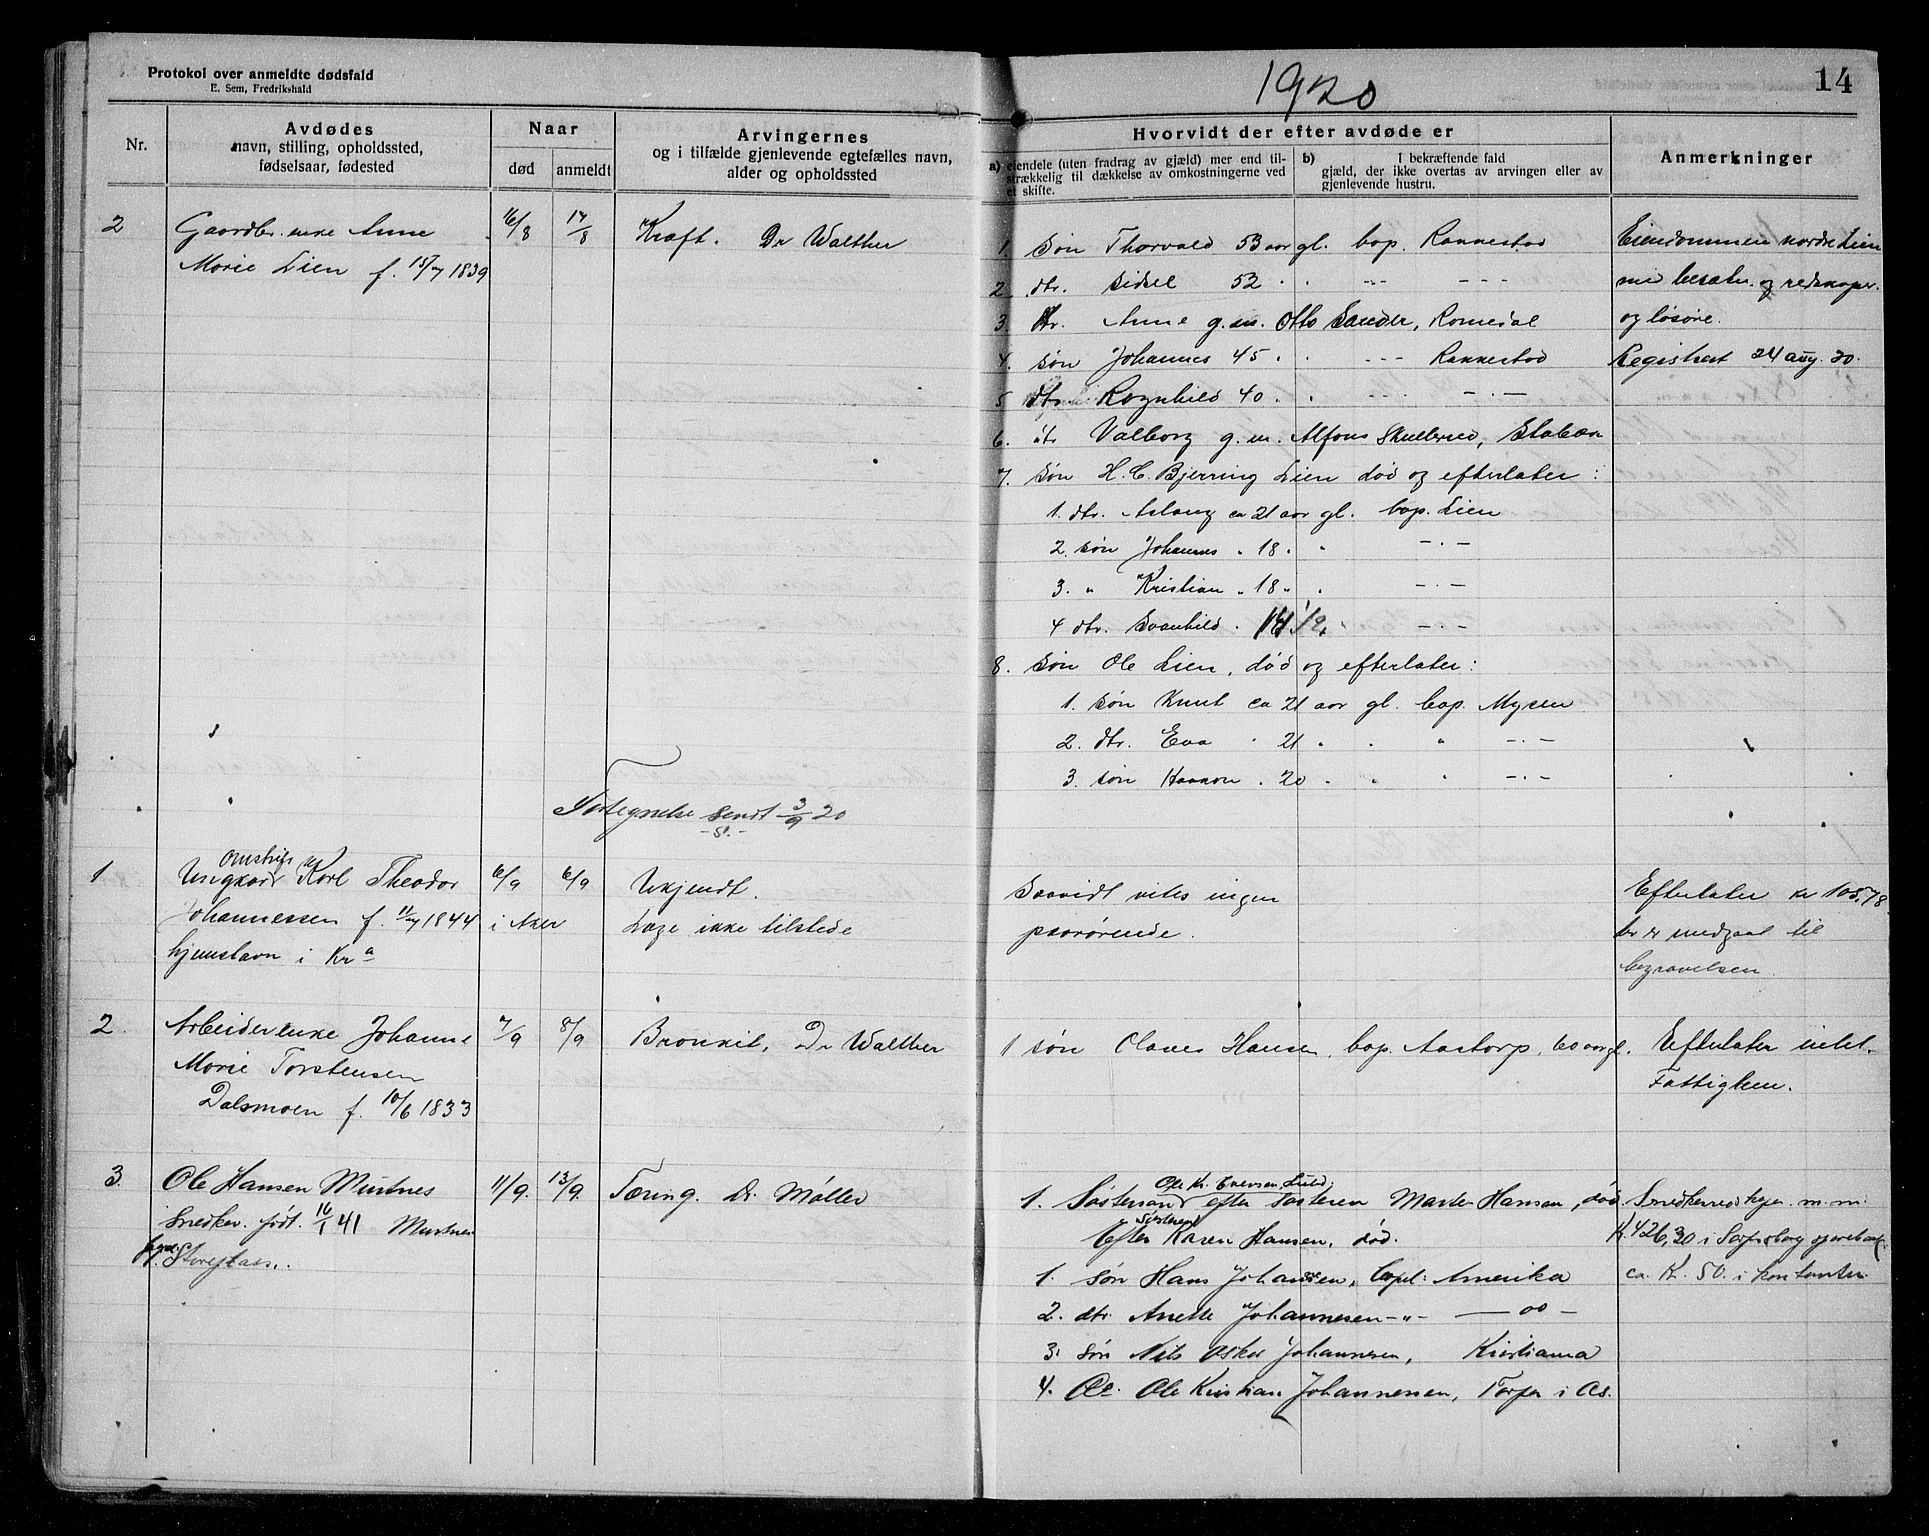 Protokol over anmeldte dødsfald
E. Sem, Fredrikshald
1920
14
Nr.
Avdødes
navn, stilling, opholdssted,
fødselsaar, fødested
Naar
død
anmeldt
Arvingernes
og i tilfælde gjenlevende egtefælles navn,
alder og opholdssted
Hvorvidt der efter avdøde er
a) eiendele (uten fradrag av gjæld) mer end til-
strækkelig til dækkelse av omkostningerne ved
et skifte.
b) I bekræftende fald
gjæld, der ikke overtas av arvingen eller av
gjenlevende hustru.
Anmerkninger
2 Gaardbr. enke Anne
Marie Lien f. 15/7 1839
16/8
17/8
Kræft. Dr Walther
1. søn Thorvald 53 aar gl. bop. Rakkestad
2. dtr. Sidsel 52 " " --- - - -
3. dtr. Anne g.m. Otto Sander, Romedal
4. søn Johannes 45 " " --- Rakkestad
5 dtr. Ragnhild 40 " " --- -.-
6. dtr Valborg g.m. Alfons Skullerud,
7. søn H. C. Bjerring Lien død og efterlater:
1. dtr. Aslaug ca 21 aar gl. bop. Lien
2. søn Johannes " 18 " " -.-
3. " Kristian " 18 " " -.-
4 dtr. Svanhild " -.-
8. søn Ole Lien, død og efterlater:
1. søn Knut ca 21 aar gl. bop. Mysen
2. dtr. Eva " 21 " " " -.-
3. søn Haakon " 20 " " " -.-
Eiendommen nordre Lien
med besætn. og redskaper
og løsøre.
Registrert 24 aug. 20.
Fortegnelse sendt 3/9 20
1 omstreif.
Ungkar Karl Theodor
Johannessen f. 1844
hjemstavn i Kra
6/9
i Aker
6/9
Ukjendt.
Læge ikke tilstede
Saavidt vites ingen
paarørende.
Efterlater kr 105,78
som er medgaat til
begravelsen
2. Arbeiderenke Johanne
Marie Torstensen
Dalsmoen f. 10/6 1833
7/9
8/9
Bronkit, Dr Walther
1 søn Olaves Hansen, bop. Aastorp, 60 aar gl.
Efterlater intet.
Fattiglem.
3. Ole Hansen Mustnes
Snedker. født. 16/1 41 Mustnes
11/9.
13/9.
Tæring. Dr. Møller
1. Søstersøn Ole Kr. efter søsteren Marte Hansen, død.
Efter Søsteren Karen Hansen, død.
1. søn Hans Johansen, bopl: Amerika
2. dtr. Anette Johannesen -"- — oo -
3. søn Nils Oskar Johannesen, Kristiania
4. Do. Ole Kristian Johannessen, i Ås.
Snedkerredskaper m.m.
K. 426,30 i Sarpsborg sparebank
ca. K. 50. i kontanter